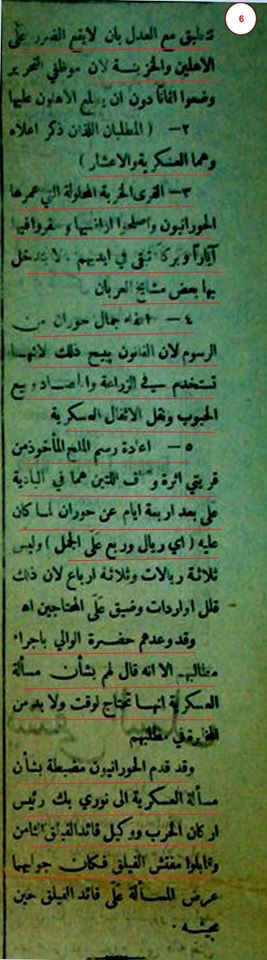 6
تنطبق مع العدل بان لا يقع الضرر على
الاهلين والخزينة لان موظفي التحرير
وضعوا اثمانًا دون ان يطلع الاهلون عليها
٢– (المطلبان اللذان ذكر اعلاه
وهما العسكرية والاعشار)
٣– القرى الخربة المحلولة التي عمرها
الحورانيون واصلحوا اراضيها وحفروا فيها
آبارًا وبركًا تبقى في ايديهم ولا يتدخل
بها بعض مشايخ العربان
٤– اعفاء جمال حوران من
الرسوم لان القانون يبيح ذلك لانها
تستخدم في الزراعة والحصاد وبيع
الحبوب ونقل الاثقال العسكرية
٥– اعادة رسم الملح المأخوذ من
قريتي اثرة و اللتين هما في البادية
على بعد اربعة ايام عن حوران لما كان
عليه (اي ريال وربع على الجمل) وليس
ثلاثة ريالات وثلاثة ارباع لان ذلك
قلل الواردات وضيق على المحتاجين اه
وقد وعدهم حضرة الوالي باجراء
مطالبهم الا انه قال لهم بشأن مسألة
العسكرية انها تحتاج لوقت ولا بد من
المخابرة في مطالبهم
وقد قدم الحورانيون مضبطة بشأن
مسألة العسكرية الى نوري بك رئيس
اركان الحرب ووكيل قائد الفيلق الثامن
وقابلوا مفتش الفيلق فكان جوابهما
عرض المسألة على قائد الفيلق حين
مجيئه ·